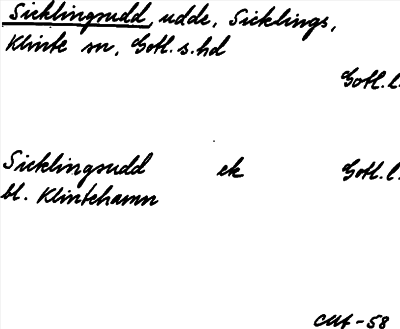 Sicklingsudd, udde, Sicklings,
Klinte sn, Gotl. s. hd
Gotl. l.
Sicklingsudd ek Gotl. l.
bl. Klintehamn
CMf-58